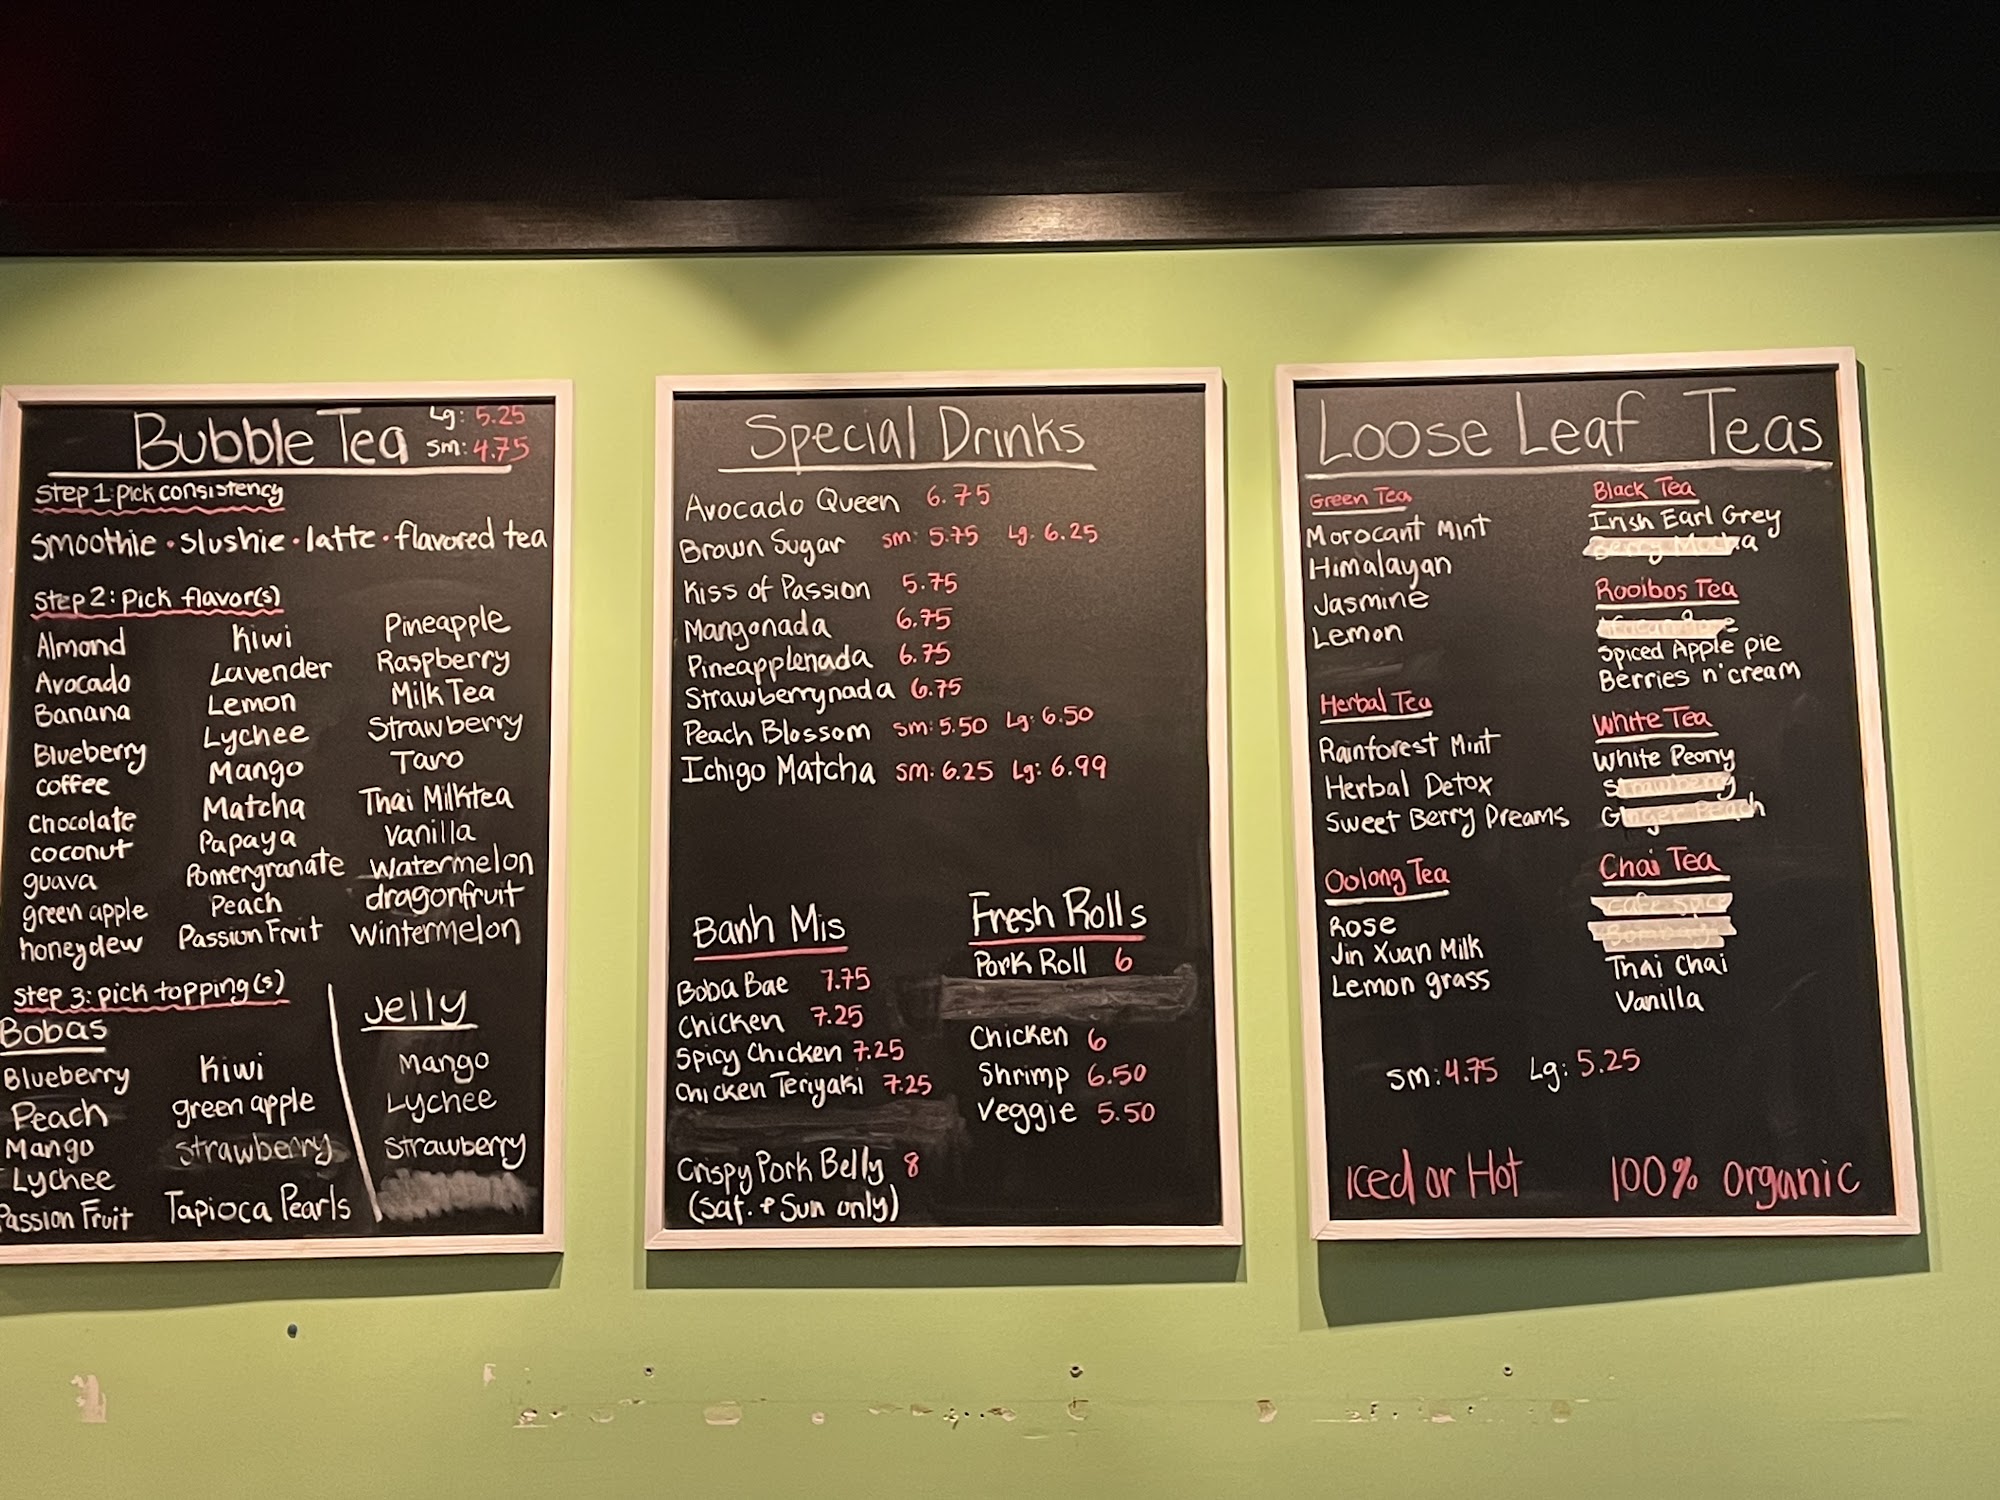 Bubble Tea
Lg: 5.25
sm: 4.75
Step 1: pick consistency
smoothie • slushie • latte • flavored tea
Step 2: pick flavor(s)
Almond
Avocado
Banana
Blueberry
coffee
chocolate
coconut
guava
green apple
honeydew
Kiwi
Lavender
Lemon
Lychee
Mango
Matcha
Papaya
Pomergranate
Peach
Passion Fruit
Pineapple
Raspberry
Milk Tea
Strawberry
Taro
Thai Milktea
Vanilla
Watermelon
dragonfruit
Wintermelon
Step 3: pick topping(s)
Bobas
Blueberry
Peach
Mango
Lychee
Passion Fruit
Kiwi
green apple
strawberry
Tapioca Pearls
Jelly
Mango
Lychee
Strawberry
Special Drinks
Avocado Queen 6.75
Brown Sugar sm: 5.75 Lg. 6.25
Kiss of Passion 5.75
Mangonada 6.75
Pineapplenada 6.75
Strawberrynada 6.75
Peach Blossom sm: 5.50 Lg: 6.50
Ichigo Matcha sm: 6.25 Lg: 6.99
Banh Mis
Boba Bae 7.75
Chicken 7.25
Spicy Chicken 7.25
Chicken Teriyaki 7.25
Crispy Pork Belly 8
(Sat. + Sun only)
Fresh Rolls
Pork Roll 6
Chicken 6
Shrimp 6.50
Veggie 5.50
Loose Leaf Teas
Green Tea
Morocant Mint
Himalayan
Jasmine
Lemon
Herbal Tea
Rainforest Mint
Herbal Detox
Sweet Berry Dreams
Oolong Tea
Rose
Jin Xuan Milk
Lemon grass
Black Tea
Irish Earl Grey
Berry Mocha
Rooibos Tea
Spiced Apple pie
Berries n' cream
White Tea
White Peony
Strawberry
Ginger Peach
Chai Tea
Cafe Spice
Bombay
Thai Chai
Vanilla
sm: 4.75 Lg: 5.25
Iced or Hot 100% organic